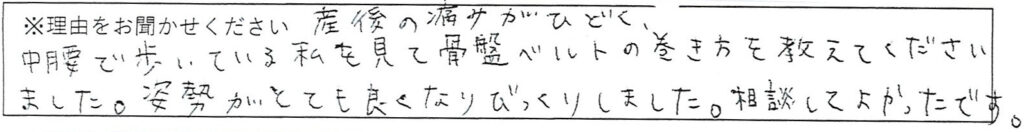 ※理由をお聞かせください 産後の痛みがひどく、
中腰で歩いている私を見て骨盤ベルトの巻き方を教えてください
ました。姿勢がとても良くなりびっくりしました。相談してよかったです。